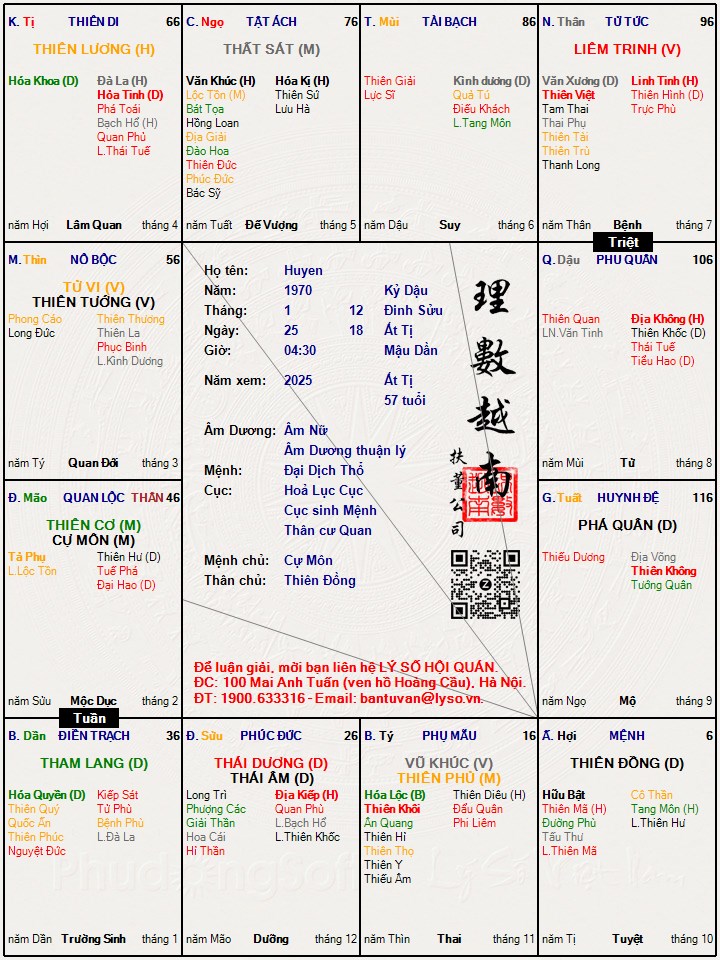 K. Tị THIÊN DI 66
THIÊN LƯƠNG (H)
Hóa Khoa (D) Đà La (H)
Hỏa Tinh (D)
Phá Toái
Bạch Hổ (H)
Quan Phủ
L.Thái Tuế
năm Hợi Lâm Quan tháng 4
C. Ngọ TẬT ÁCH 76
THẤT SÁT (M)
Văn Khúc (H) Hóa Kị (H)
Lộc Tồn (M) Thiên Sứ
Bát Tọa Lưu Hà
Hồng Loan
Địa Giải
Đào Hoa
Thiên Đức
Phúc Đức
Bác Sỹ
năm Tuất Đế Vượng tháng 5
T. Mùi TÀI BẠCH 86
Thiên Giải Kình dương (D)
Lực Sĩ Quả Tú
Điếu Khách
L.Tang Môn
năm Dậu Suy tháng 6
N. Thân TỬ TỨC 96
LIÊM TRINH (V)
Văn Xương (D) Linh Tinh (H)
Thiên Việt Thiên Hình (D)
Tam Thai Trực Phù
Thai Phụ
Thiên Tài
Thiên Trù
Thanh Long
năm Thân Bệnh tháng 7
Triệt
M. Thìn NÔ BỘC 56
TỬ VI (V)
THIÊN TƯỚNG (V)
Phong Cáo Thiên Thương
Long Đức Thiên La
Phục Binh
L.Kình Dương
năm Tý Quan Đới tháng 3
Họ tên: Huyen
Năm: 1970 Kỷ Dậu
Tháng: 1 12 Đinh Sửu
Ngày: 25 18 Ất Tị
Giờ: 04:30 Mậu Dần
Năm xem: 2025 Ất Tị
57 tuổi
Âm Dương: Âm Nữ
Âm Dương thuận lý
Mệnh: Đại Dịch Thổ
Cục: Hoả Lục Cục
Cục sinh Mệnh
Thân cư Quan
Mệnh chủ: Cự Môn
Thân chủ: Thiên Đồng
理數越南
扶董公司
Để luận giải, mời bạn liên hệ LÝ SỐ HỘI QUÁN.
ĐC: 100 Mai Anh Tuấn (ven hồ Hoàng Cầu), Hà Nội.
ĐT: 1900.633316 - Email: bantuvan@lyso.vn.
Q. Dậu PHU QUÂN 106
Thiên Quan Địa Không (H)
LN.Văn Tinh Thiên Khốc (D)
Thái Tuế
Tiểu Hao (D)
năm Mùi Tử tháng 8
Đ. Mão QUAN LỘC THÂN 46
THIÊN CƠ (M)
CỰ MÔN (M)
Tả Phụ Thiên Hư (D)
L.Lộc Tồn Tuế Phá
Đại Hao (D)
năm Sửu Mộc Dục tháng 2
Tuần
G. Tuất HUYNH ĐỆ 116
PHÁ QUÂN (D)
Thiếu Dương Địa Võng
Thiên Không
Tướng Quân
năm Ngọ Mộ tháng 9
B. Dần ĐIỀN TRẠCH 36
THAM LANG (D)
Hóa Quyền (D) Kiếp Sát
Thiên Quý Tử Phù
Quốc Ấn Bệnh Phù
Thiên Phúc L.Đà La
Nguyệt Đức
năm Dần Trường Sinh tháng 1
Đ. Sửu PHÚC ĐỨC 26
THÁI DƯƠNG (D)
THÁI ÂM (D)
Long Trì Địa Kiếp (H)
Phượng Các Quan Phù
Giải Thần L.Bạch Hổ
Hoa Cái L.Thiên Khốc
Hỉ Thần
năm Mão Dưỡng tháng 12
B. Tý PHỤ MẪU 16
VŨ KHÚC (V)
THIÊN PHỦ (M)
Hóa Lộc (B) Thiên Diêu (H)
Thiên Khôi Đẩu Quân
Ân Quang Phi Liêm
Thiên Hỉ
Thiên Thọ
Thiên Y
Thiếu Âm
năm Thìn Thai tháng 11
Ấ. Hợi MỆNH 6
THIÊN ĐỒNG (D)
Hữu Bật Cô Thần
Thiên Mã (H) Tang Môn (H)
Đường Phù L.Thiên Hư
Tấu Thư
L.Thiên Mã
năm Tị Tuyệt tháng 10